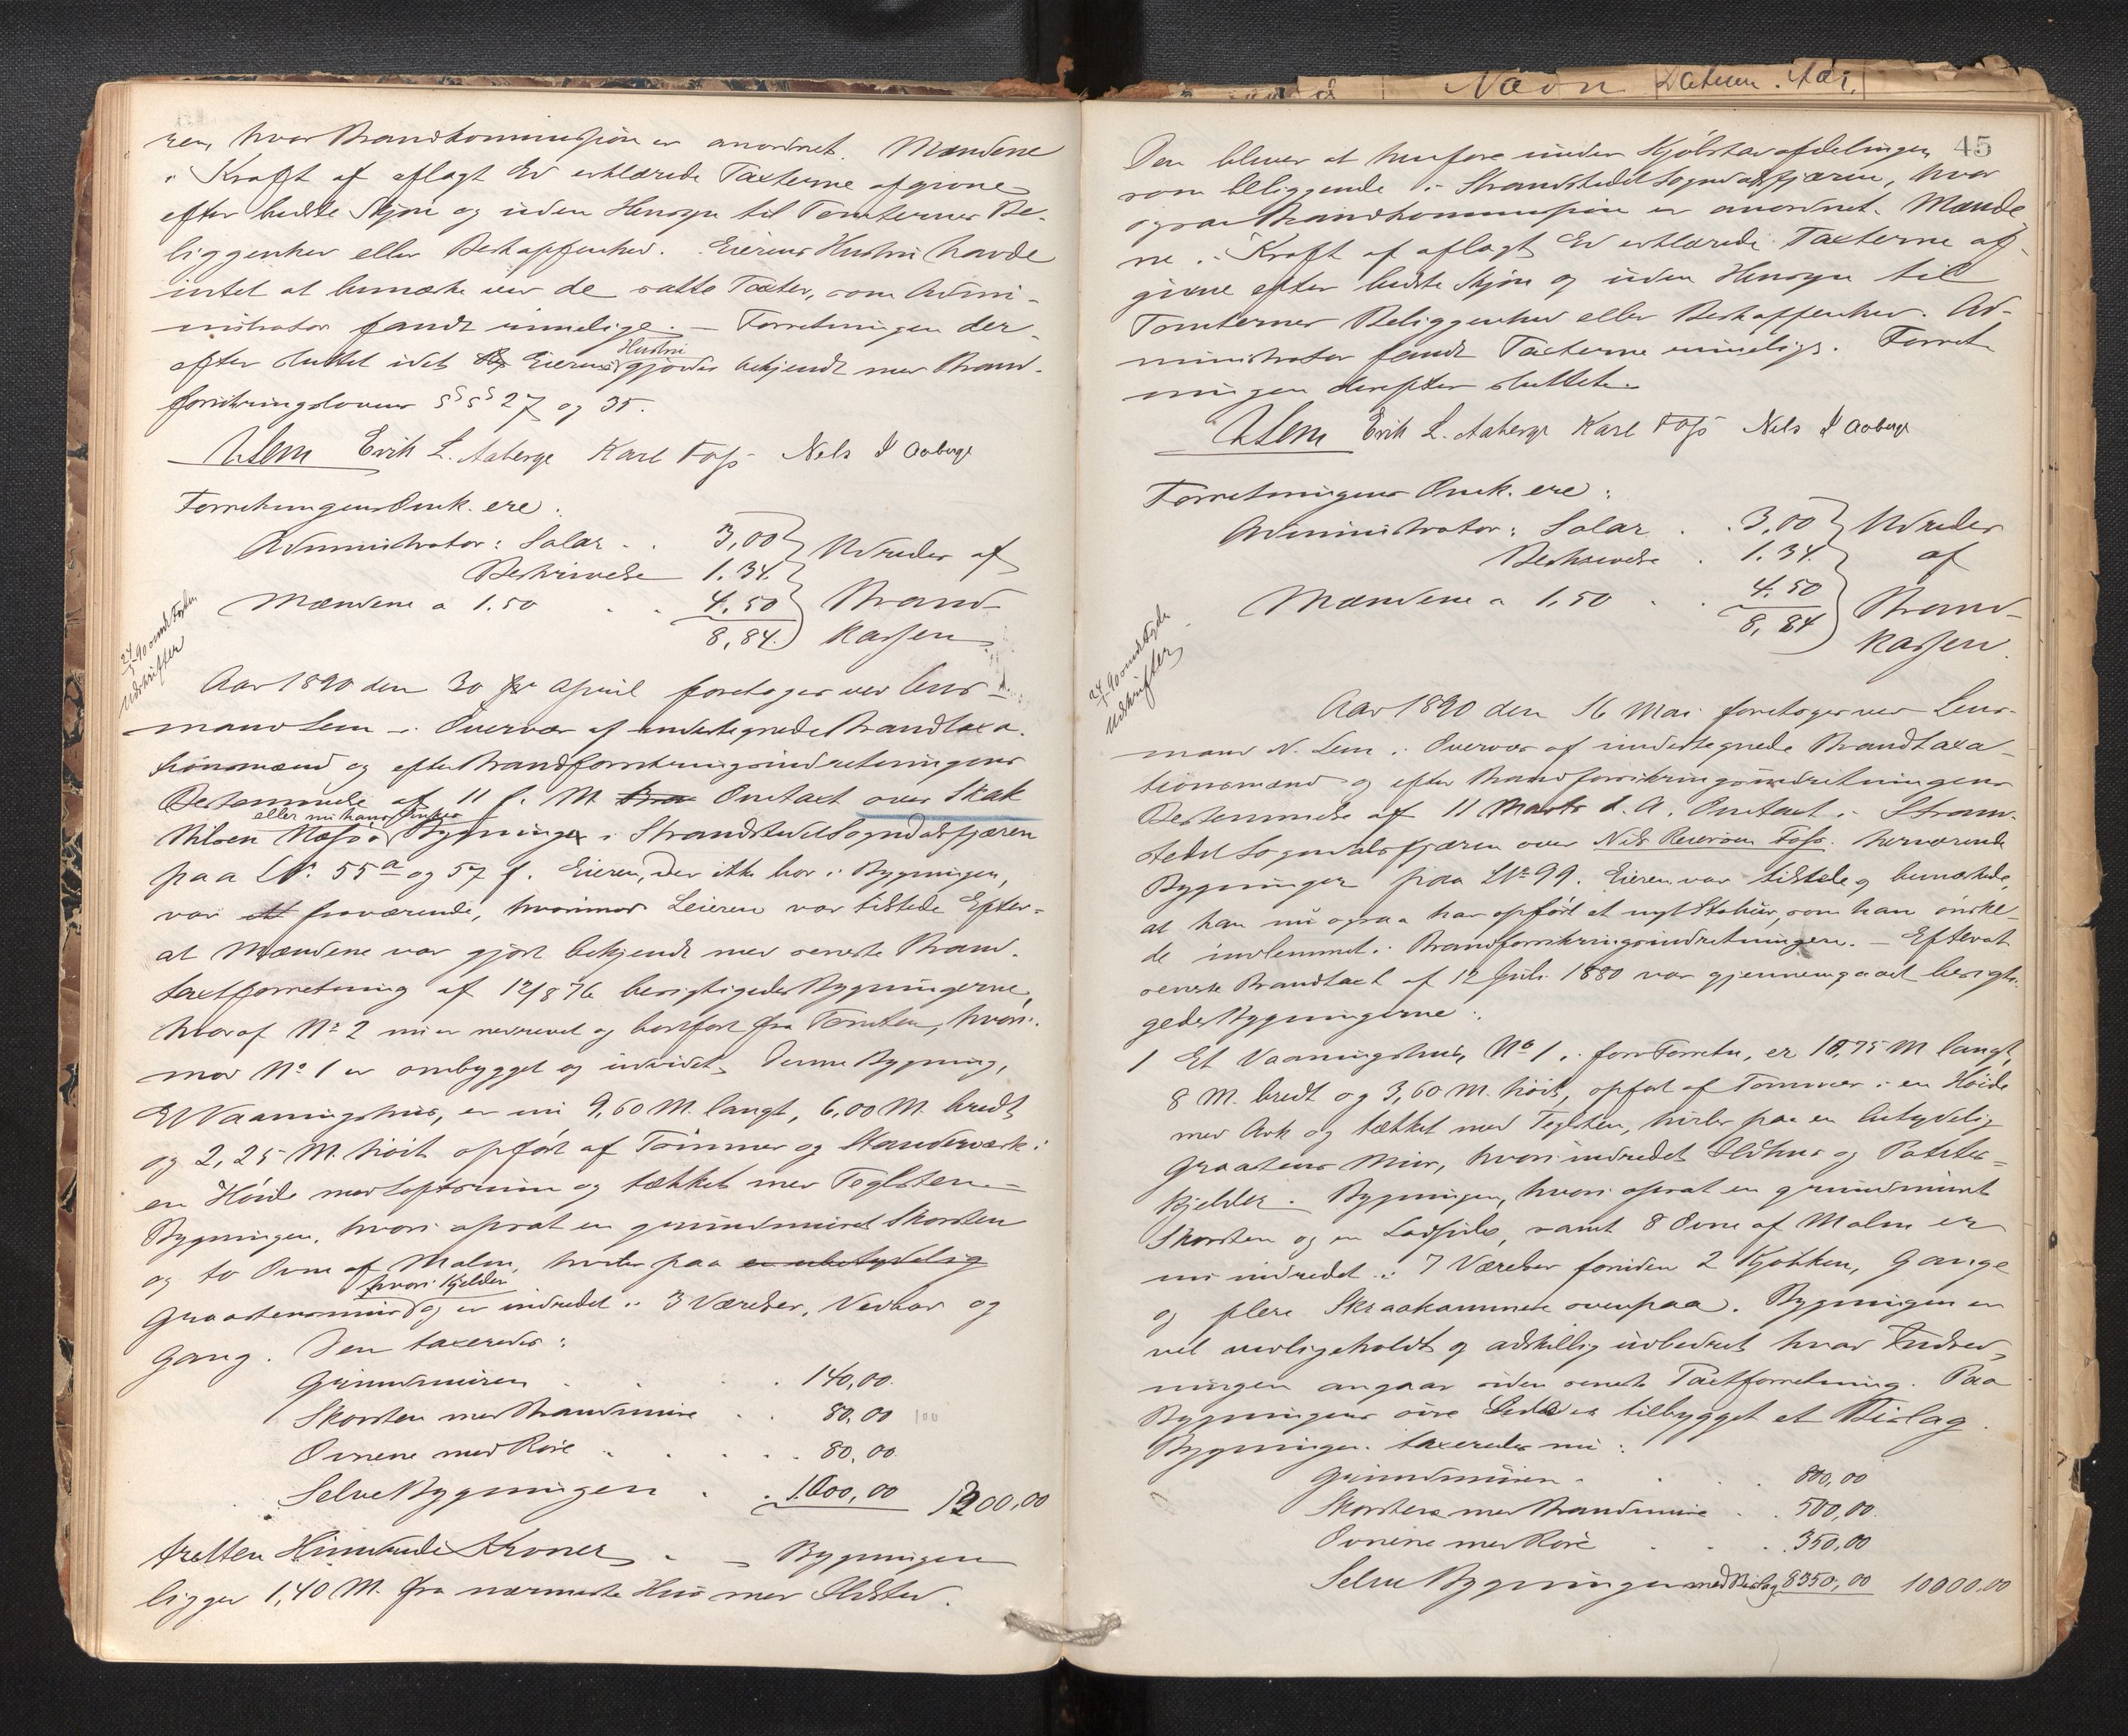 ren, hvor Brandkommission er anordnet. Mændene
i Kraft af aflagt Ed erklærede Taxterne afgivne
efter bedste Skjøn og uden Hensyn til Tomternes Be-
liggenhed eller Beskaffenhed. Eierens Hustru havde
intet at bemærke ved de satte Taxter, som Admi-
nistrator fandt rimelige. – Forretningen der-
efter sluttet idet Eierens Hustru gjordes bekjendt med Brand-
forsikringslovens §§ 27 og 35.
NLem Erik L. Aaberge Karl Foss Nels I Aaberge
Forretningens Omk. ere:
Administrator: Salar . . 3,00 Udredes af
Beskrivelse 1.34.
Mændene a 1.50 . . 4.50 Brand-
8,84. kassen.
24/5 90 omdstegtes
Udskrifter
Aar 1890 den 30 April foretoges ved Lens-
mand Lem i Overvær af undertegnede Brandtaxa-
tionsmænd og efter Brandforsikringsindretningens
Bestemmelse af 11 f. M. Omtaxt over Skak
Nilsen Næss's eller nu hans Enkes Bygninger i Strandstedet Sogndalsfjæren
paa LN: 55a og 57 f. Eieren, der ikke bor i Bygningen,
var fraværende, hvorimod Leieren var tilstede Efter-
at Mændene var gjort bekjendt med seneste Brand-
taxtforretning af 12/8 76 besigtigedes Bygningerne,
hvoraf No 2 nu er nedrevet og bortført fra Tomten, hvori-
mod No 1 er ombygget og udvidet. Denne Bygning,
Et Vaaningshus, er nu 9,60 M. langt, 6,00 M. bredt
og 2,25 M. høit opført af Tømmer og Standerværk i
en Høide med Loftsrum og tækket med Teglsten. –
Bygningen, hvori opsat en grundmuret Skorsten
og to Ovne af Malm, hviler paa en ubetydelig
Graastensmur hvori Kjelder og er indredet i 3 Værelser, Vedbod og
Gang. Den taxeredes:
Grundmuren . . . 140,00.
Skorsten med Brandmure . . 80,00 100
Ovnene med Rør . . . 80,00
Selve Bygningen . . 1000,00 1300,00
tretten Hundrede Kroner . – Bygningen
ligger 1,40 M. fra nærmeste Hus med Ildsted.
Nævn Datum. Aar.
45
Den bliver at henføre under Kjøbstadafdelingen
som beliggende i Strandstedet Sogndalsfjæren, hvor
ogsaa Brandkommission er anordnet. Mænde
ne i Kraft af aflagt Ed erklærede Taxterne af-
givne efter bedste Skjøn og uden Hensyn til
Tomternes Beliggenhed eller Beskaffenhed. Ad-
ministrator fandt Taxterne rimelige. Forret-
ningen derefter sluttet.
NLem Erik L. Aaberge Karl Foss Nels I Aaberge
Forretningens Omk. ere:
Administrator: Salar . . 3,00 Udredes
Beskrivelse . 1.34. af
Mændene a 1,50 . . 4.50 Brand-
8,84 kassen.
24/5 90 omdstegtes
Udskrifter
Aar 1890 den 16 Mai foretoges ved Lens-
mand N. Lem i Overvær af undertegnede Brandtaxa-
tionsmænd og efter Brandforsikringsindretningens
Bestemmelse af 11 Marts d. A. Omtaxt i Strand-
stedet Sogndalsfjæren over Nils Foss. herværende
Bygninger paa LNo 99. Eieren var tilstede og bemærkede,
at han nu ogsaa har opført et nyt Stabur, som han ønske-
de indlemmet i Brandforsikringsindretningen. – Efterat
seneste Brandtaxt af 12 Juli 1880 var gjennemgaaet besigti-
gedes Bygningerne:
1 Et Vaaningshus, No 1 i forr. Forretn., er 18,75 M langt,
8 M. bredt og 3,60 M. høit, opført af Tømmer i en Høide
med Ark og tækket med Teglsten, hviler paa en betydelig
Graastens Mur, hvori indredet Ildhus og Potetes-
kjelder. Bygningen, hvori opsat en grundmuret
Skorsten og en Ladpibe, samt 8 Ovne af Malm er
nu indredet i 7 Værelser foruden 2 Kjøkken, Gange
og flere Skraakammere ovenpaa. Bygningen er
vel vedligeholdt og adskillig udbedret hvad Indred-
ningen angaar siden seneste Taxtforretning. Paa
Bygningens øvre Side er tilbygget et Bislag.
Bygningen taxeredes nu:
Grundmuren . . . 800,00
Skorstene med Brandmure . . 500,00.
Ovnene med Rør . . . 350,00
Selve Bygningen med Bislag 8350,00 10000.00